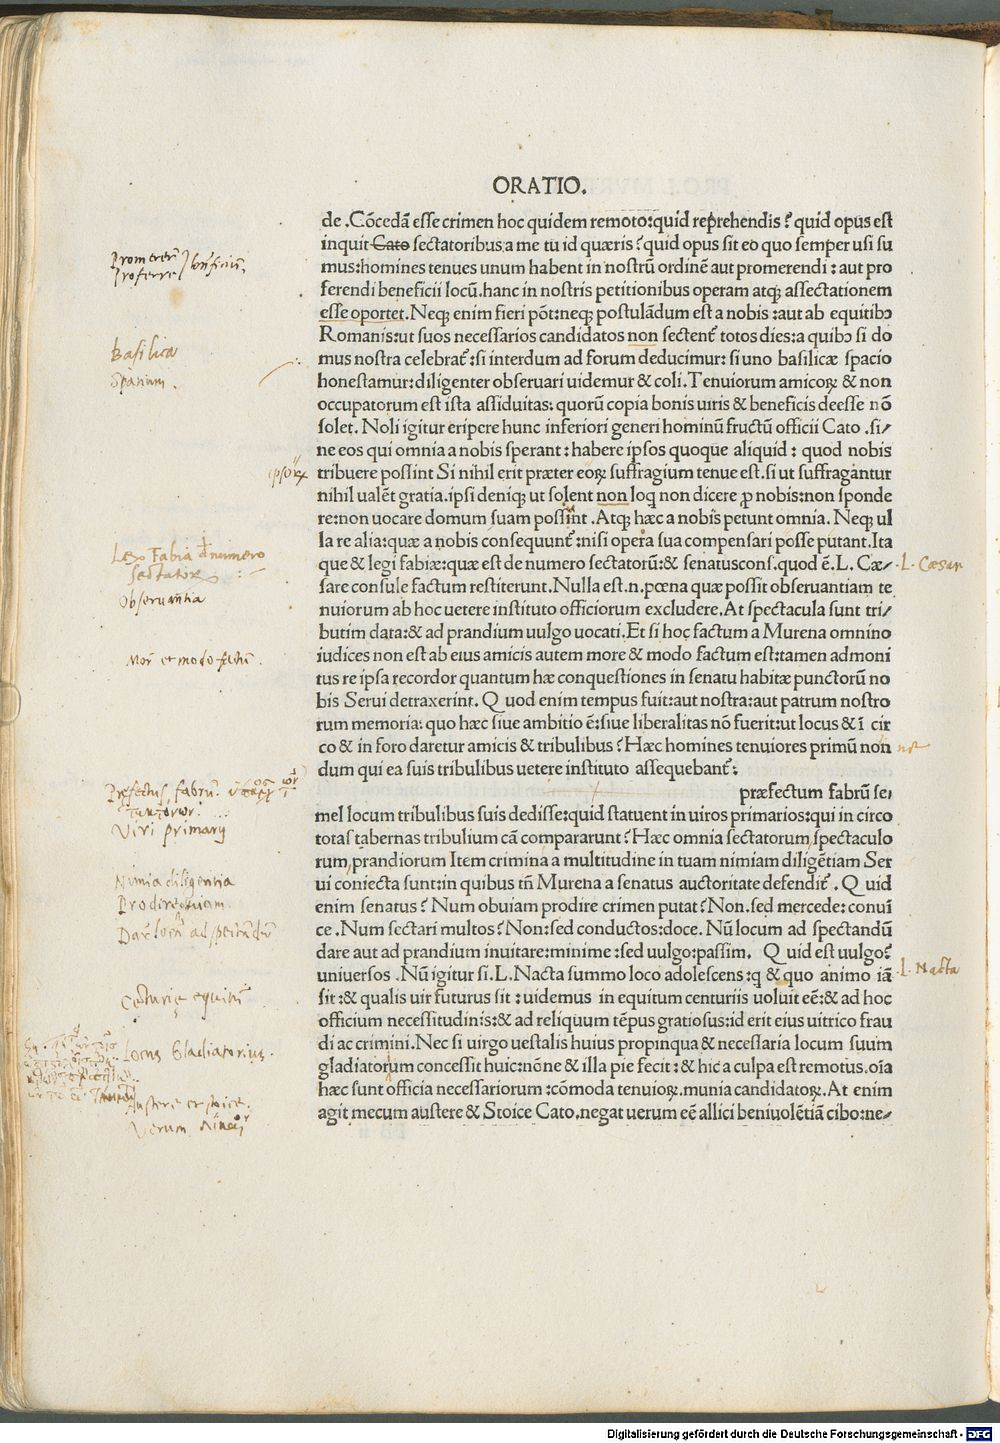 ORATIO.
de .Cōcedā esse crimen hoc quidem remoto:quid reprehendis? quid opus est
inquit Cato sectatoribus,a me tu id quæris? quid opus sit eo quo semper usi su
mus:homines tenues unum habent in nostrū ordinē aut promerendi: aut pro
ferendi beneficii locū.hanc in nostris petitionibus operam atqꝫ assectationem
esse oportet.Neqꝫ enim fieri pōt:neqꝫ postulādum est a nobis :aut ab equitibꝰ
Romanis:ut suos necessarios candidatos non sectent̄ totos dies:a quibꝰ si do
mus nostra celebrat̄ :si interdum ad forum deducimur: si uno basilicæ spacio
honestamur:diligenter obseruari uidemur & coli.Tenuiorum amicoꝝ & non
occupatorum est ista assiduitas: quorū copia bonis uiris & beneficis deesse nō
solet. Noli igitur eripere hunc inferiori generi hominū fructū officii Cato .si/
ne eos qui omnia a nobis sperant: habere ipsos quoque aliquid: quod nobis
tribuere possint Si nihil erit præter eoꝝ suffragium tenue est.si ut suffragantur
nihil ualēt gratia.ipsi deniqꝫ ut solent non loq̄ non dicere ꝓ nobis:non sponde
re:non uocare domum suam possint .Atqꝫ hæc a nobis petunt omnia. Neqꝫ ul
la re alia:quæ a nobis consequunt̄ :nisi opera sua compensari posse putant.Ita
que & legi fabiæ:quæ est de numero sectatorū:& senatuscons.quod ē.L. Cæ/
sare consule factum restiterunt. Nulla est.n.pœna quæ possit obseruantiam te
nuiorum ab hoc uetere instituto officiorum excludere.At spectacula sunt tri/
butim data:& ad prandium uulgo uocati.Et si hoc factum a Murena omnino
iudices non est ab eius amicis autem more & modo factum est:tamen admoni
tus re ipsa recordor quantum hæ conquestiones in senatu habitæ punctorū no
bis Serui detraxerint. Q uod enim tempus fuit:aut nostra:aut patrum nostro
rum memoria: quo hæc siue ambitio ē:siue liberalitas nō fuerit:ut locus & ī cir
co & in foro daretur amicis & tribulibus? Hæc homines tenuiores primū non
dum qui ea suis tribulibus uetere instituto assequebant̄ :
præfectum fabrū se/
mel locum tribulibus suis dedisse:quid statuent in uiros primarios:qui in circo
totas tabernas tribulium cā compararunt? Hæc omnia sectatorum,spectaculo
rum,prandiorum Item crimina a multitudine in tuam nimiam diligētiam Ser
ui coniecta sunt:in quibus tn̄ Murena a senatus auctoritate defendit̄ . Q uid
enim senatus? Num obuiam prodire crimen putat? Non.sed mercede: conuī
ce .Num sectari multos? Non:sed conductos:doce. Nū locum ad spectandū
dare aut ad prandium inuitare:minime :sed uulgo:passim. Q uid est uulgo?
uniuersos .Nū igitur si.L.Nacta summo loco adolescens:q & quo animo iā
sit:& qualis uir futurus sit : uidemus in equitum centuriis uoluit eē:& ad hoc
officium necessitudinis:& ad reliquum tēpus gratiosus:id erit eius uitrico frau
di ac crimini.Nec si uirgo uestalis huius propinqua & necessaria locum suum
gladiatorum concessit huic:nōne & illa pie fecit: & hic a culpa est remotus.oīa
hæc sunt officia necessariorum :cōmoda tenuioꝝ.munia candidatoꝝ.At enim
agit mecum austere & Stoice Cato.negat uerum eē allici beniuolētiā cibo:ne/
Basilica
Spatium.
ipsoꝝ
Lex Fabia de numero
sectatoꝝ
Observantia
L. Cæsar
Viri primarij
Nimia diligentia
Prodire obviam.
L. Nacta
Locus Gladiatorius.
Austere et stoice.
Digitalisierung gefördert durch die Deutsche Forschungsgemeinschaft - DFG